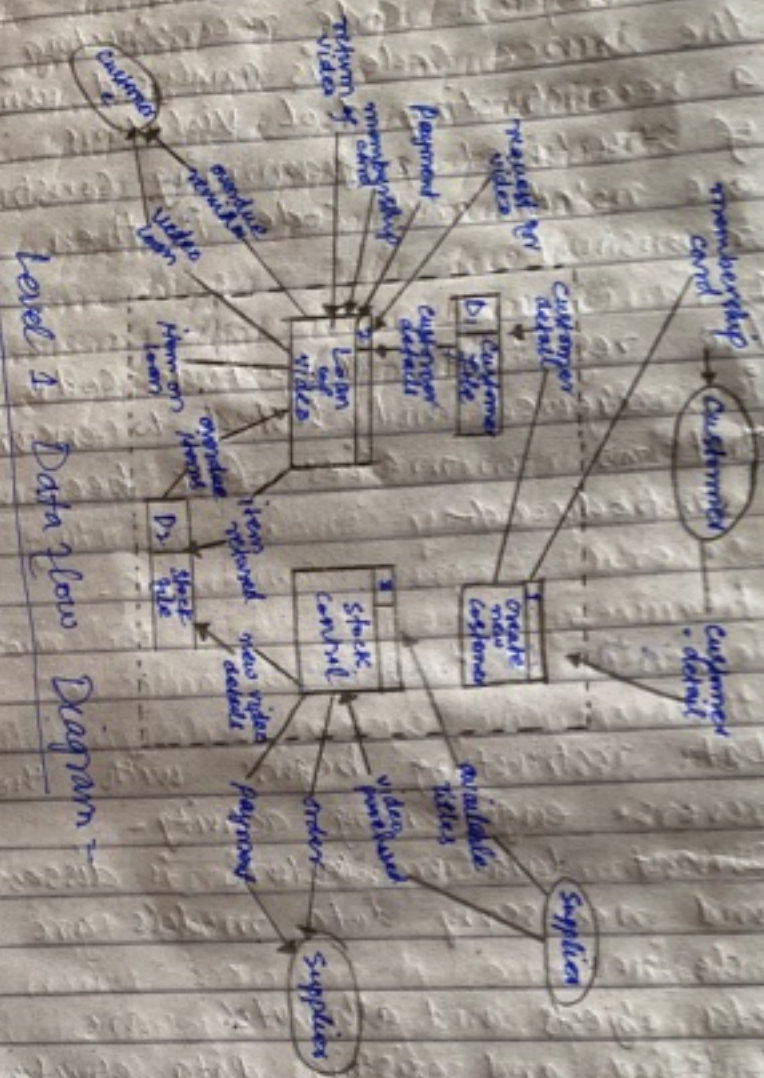 membership
card
Customer
customer
detail
1
Create
new
Customer
customer
detail
D1
Customer
file
customer
details
request for
video
Payment
membership
card
return of
video
Loan
of
video
Customer
overdue
video
loan
item on
loan
overdue
items
item
returned
D2
Stock
file
Stock
control
new video
details
available
titles
video
purchased
order
payment
Supplier
Supplier
Level 1 Data flow Diagram -